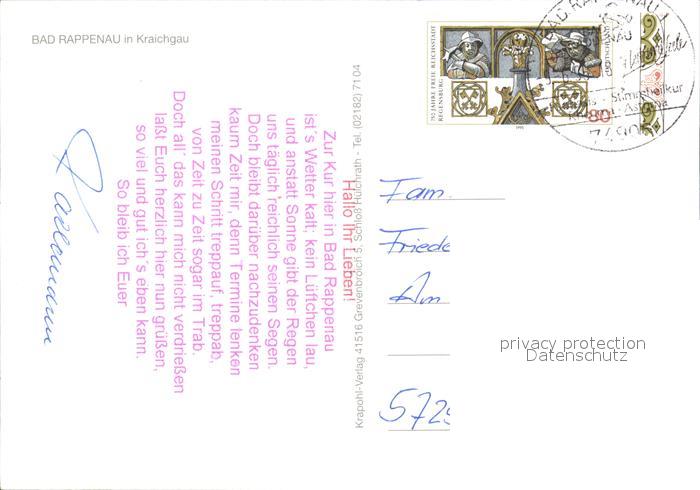 BAD RAPPENAU in Kraichgau
750 JAHRE FREIE REICHSSTADT
REGENSBURG
80
1995
BAD RAPPENAU
Hallo Ihr Lieben!
Zur Kur hier in Bad Rappenau
ist's Wetter kalt, kein Lüftchen lau,
und anstatt Sonne gibt der Regen
uns täglich reichlich seinen Segen.
Doch bleibt darüber nachzudenken
kaum Zeit mir, denn Termine lenken
meinen Schritt treppauf, treppab,
von Zeit zu Zeit sogar im Trab.
Doch all' das kann mich nicht verdrießen
laßt Euch herzlich hier nun grüßen,
so viel und gut ich's eben kann.
So bleib ich Euer
Krapohl-Verlag 41516 Grevenbroich 5, Schloß Hülchrath - Tel. (02182) 7104
Fam.
Friede
Am
572
privacy protection
Datenschutz